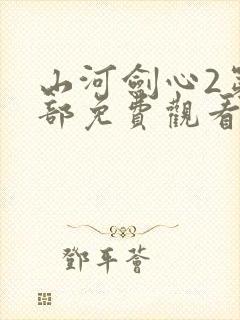 山河劍心2第
部免費觀看
鄧平薈